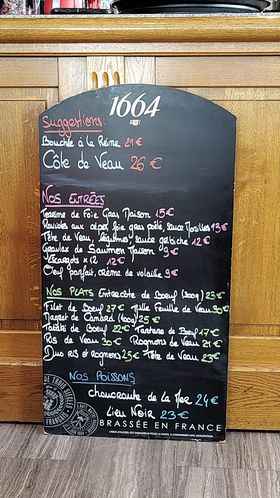 1664
Suggestions
Bouchée à la Reine 21€
Côte de Veau 26 €
Nos Entrées
Terrine de Foie Gras Maison 15€
Ravioles aux cèpes, foie gras poêlé, sauce Morilles 15€
Tête de Veau, légumes, sauce gribiche 12€
Gravlax de Saumon Maison 9€
Escargots x12 12€
Oeuf parfait, crème de volaille 9€
Nos Plats Entrecôte de Boeuf (300g) 23€
Filet de Boeuf 27€ Mille Feuille de Veau 30€
Magret de Canard (400g) 25€
Tartare de Boeuf 17€
Ris de Veau 30€ Rognons de Veau 21€
Duo Ris et Rognons 25€ Tête de Veau 23€
Nos Poissons
choucroute de la Mer 24€
Lieu Noir 23€
BRASSÉE EN FRANCE